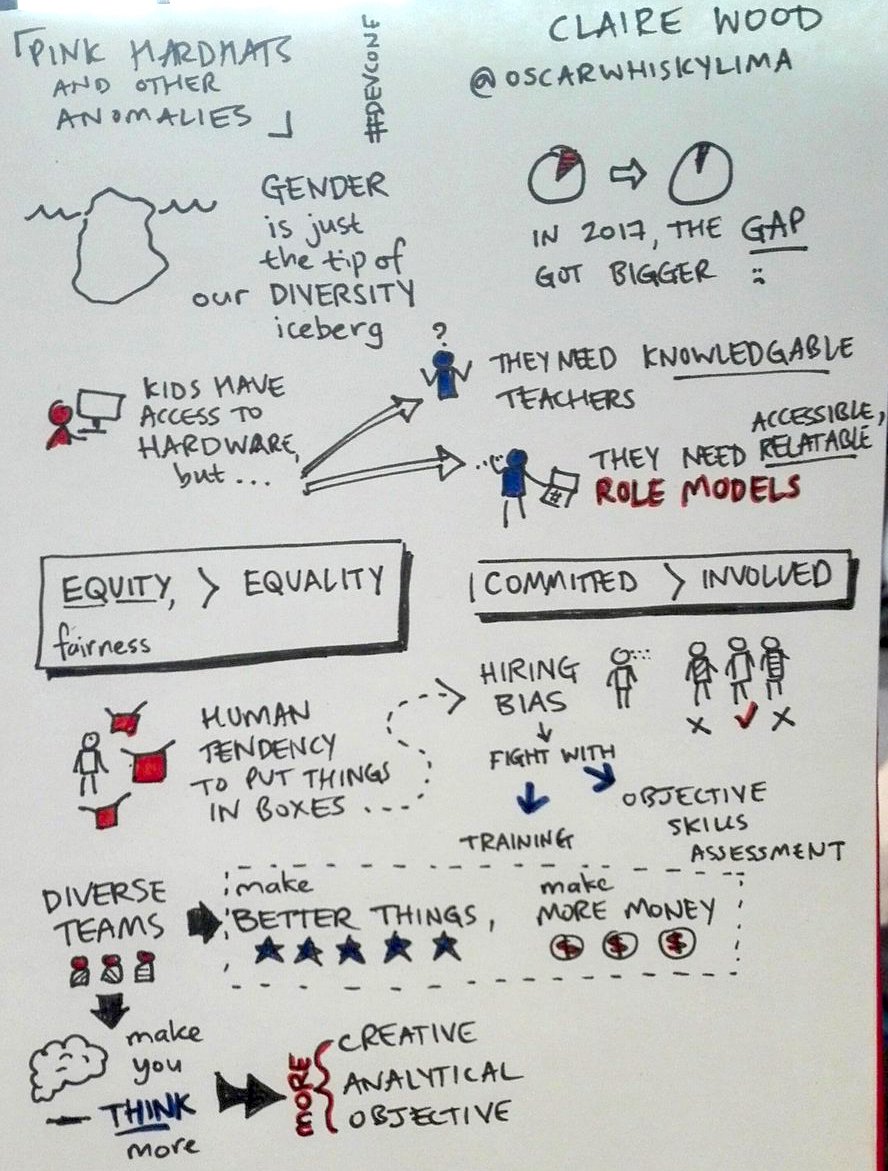 「PINK HARDHATS
AND OTHER
ANOMALIES」
#DEVCONF
CLAIRE WOOD
@OSCARWHISKYLIMA
GENDER
is just
the tip of
our DIVERSITY
iceberg
IN 2017, THE GAP
GOT BIGGER :(
KIDS HAVE
ACCESS TO
HARDWARE,
but ...
?
THEY NEED KNOWLEDGABLE
TEACHERS
ACCESSIBLE,
THEY NEED RELATABLE
ROLE MODELS
EQUITY, > EQUALITY
fairness
COMMITTED > INVOLVED
HUMAN
TENDENCY
TO PUT THINGS
IN BOXES ...
HIRING
BIAS
X ✓ X
FIGHT WITH
TRAINING
OBJECTIVE
SKILLS
ASSESSMENT
DIVERSE
TEAMS
make
BETTER THINGS,
make
MORE MONEY
$ $ $
make
you
THINK
more
MORE
CREATIVE
ANALYTICAL
OBJECTIVE